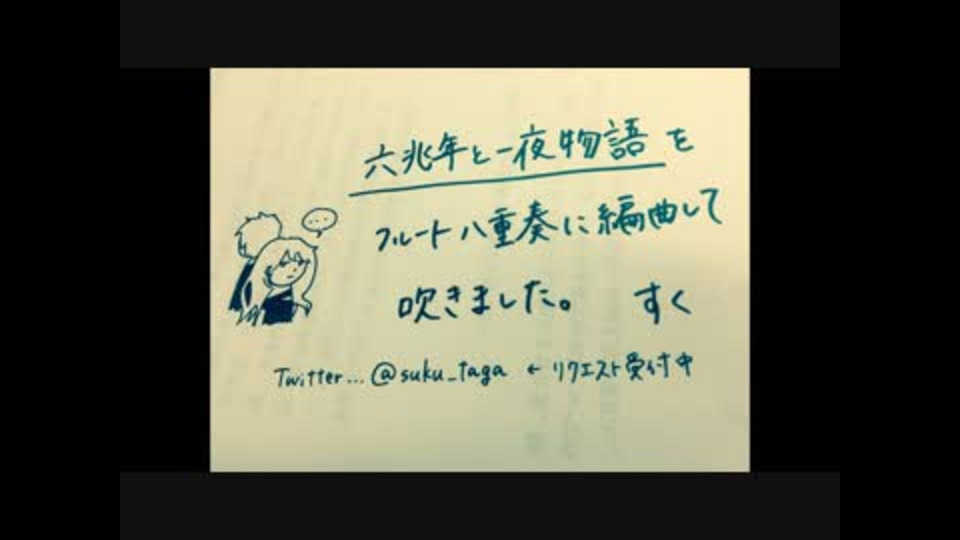 六兆年と一夜物語を
フルート八重奏に編曲して
吹きました。 すく
Twitter... @suku_taga ← リクエスト受付中